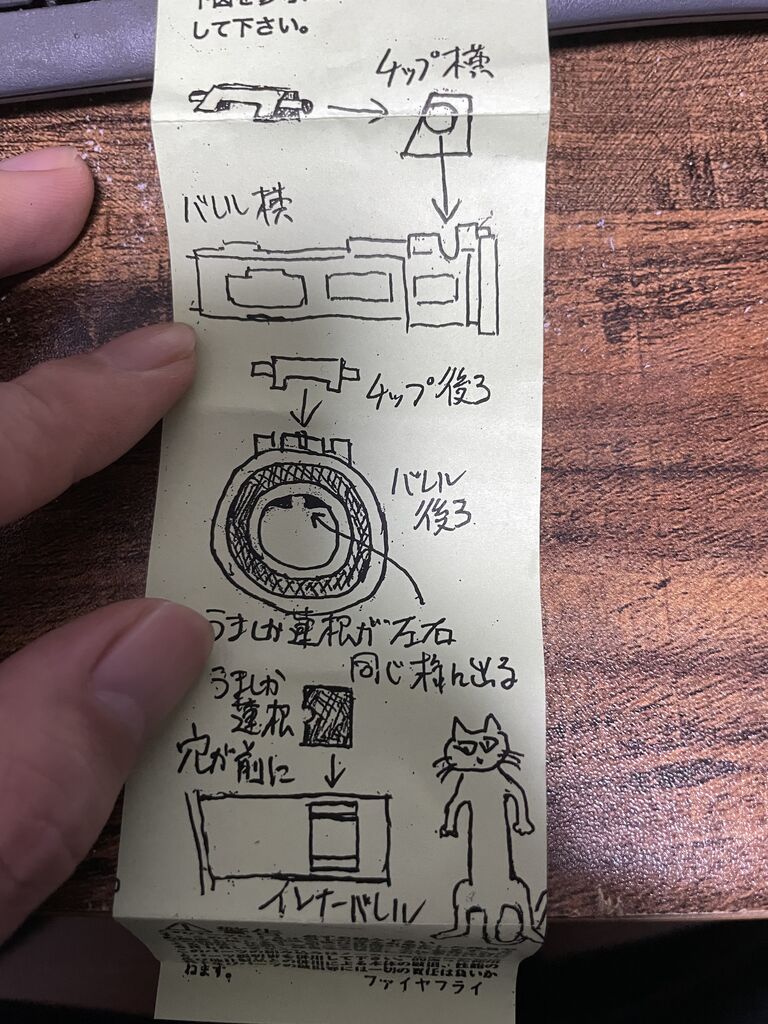 して下さい。
チップ横
バレル横
チップ後ろ
バレル
後ろ
うましか蓮根が左右
同じ様に出る
うましか
蓮根
穴が前に
インナーバレル
警告
ねます。
ファイヤフライ